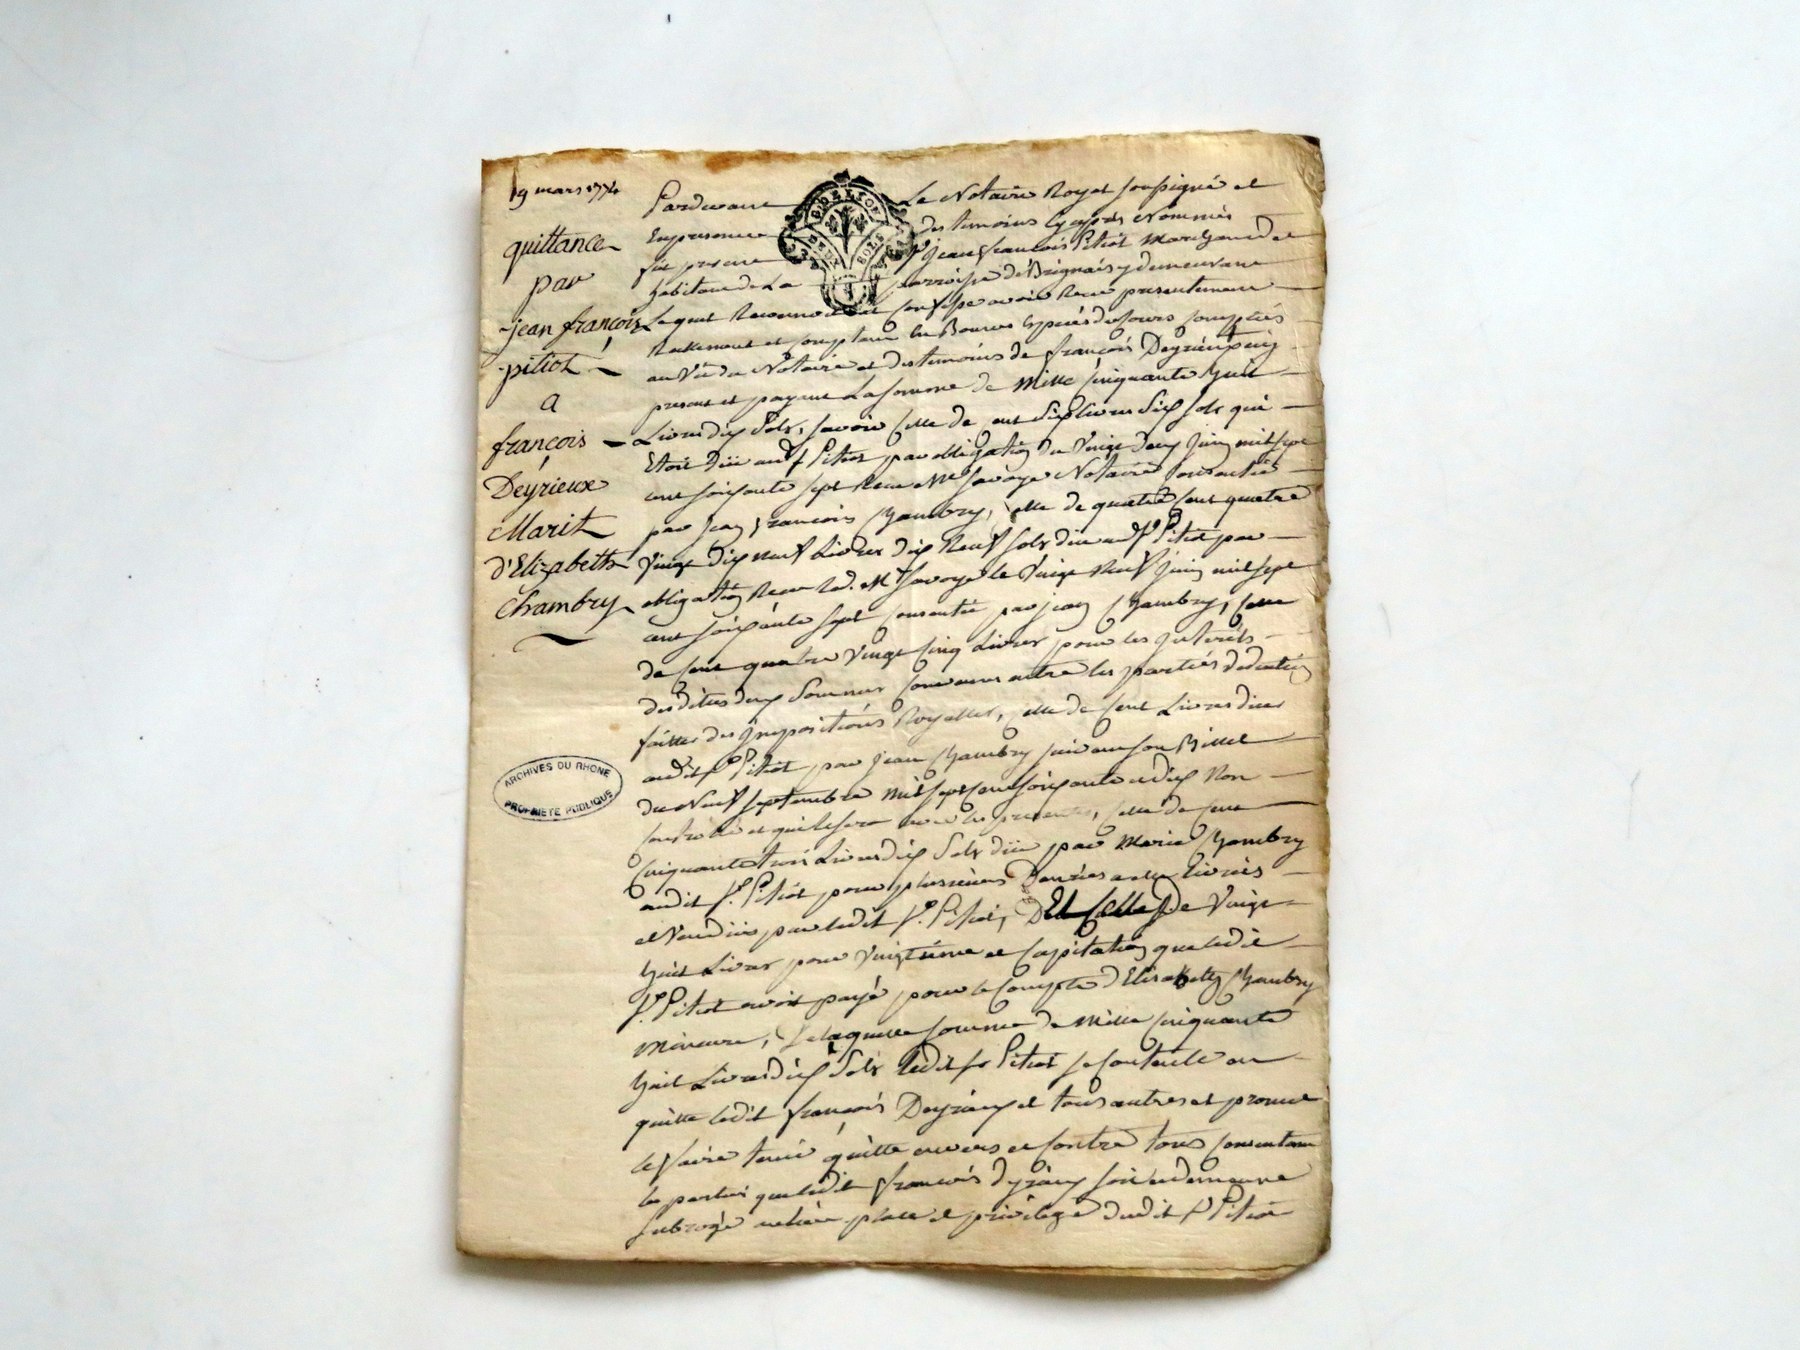 19 mars 1774
quittance
par
jean françois
pitiot
a
françois
Deyrieux
Marit
d'Elizabeth
Chambry
ARCHIVES DU RHONE
PROPRIETE PUBLIQUE
G. DE LYON
DEUX SOLS
Pardevant Le Notaire Royal soussigné et
En presence des temoins cy après Nommés
fut present Sr jean françois Pitiot Marchand et
habitant de La parroisse de Brignais y demeurant
Lequel Reconnoit et confesse avoir Receu presentement
Reellement et comptant en Bonnes especes de cours comptées
au Vû du Notaire et des temoins de françois Deyrieux icy
present et payant La somme de Mille cinquante huit
Livres dix Sols, savoir celle de cent dix livres dix sols qui
Etoit dûe audt Sr Pitiot par obligation du Vingt deux juin mil sept
cent soixante sept Receu Me Savoye Notaire consentie
par jean françois Chambry, celle de quatre cent quatre
Vingt dix neuf Livres dix Neuf sols due audt Sr Pitiot par
obligation Receu led. Me Savoye le Vingt Neuf juin mil sept
cent soixante sept consentie par jean Chambry, celle
de cent quatre Vingt cinq Livres pour les interêts
des dites deux Sommes convenus entre les parties deduction
faitte des impositions Royalles, celle de Cent Livres dues
audit Sr Pitiot par jean Chambry suivant son Billet
du Neuf septembre mil sept cent soixante et dix Non
controllé et qui le sera avec les presentes, celle de cent
cinquante trois Livres dix Sols dûe par Marie Chambry
audit Sr. Pitiot pour plusieurs Denrées a elle Livrées
et Vendues par ledit Sr. Pitiot, Et Celle De Vingt
huit Livres pour Vingtième et Capitation que ledit
Sr. Pitiot avoit payé pour le Compte d'Elisabeth Chambry
mineure, de laquelle somme de Mille cinquante
huit Livres dix Sols ledit Sr Pitiot se contente en
quitte ledit françois Deyrieux et tous autres et promet
le faire tenir quitte envers et contre tous consentant
les parties que ledit françois Deyrieux soit et demeure
subrogé au lieu place et privilege dudit Sr Pitiot